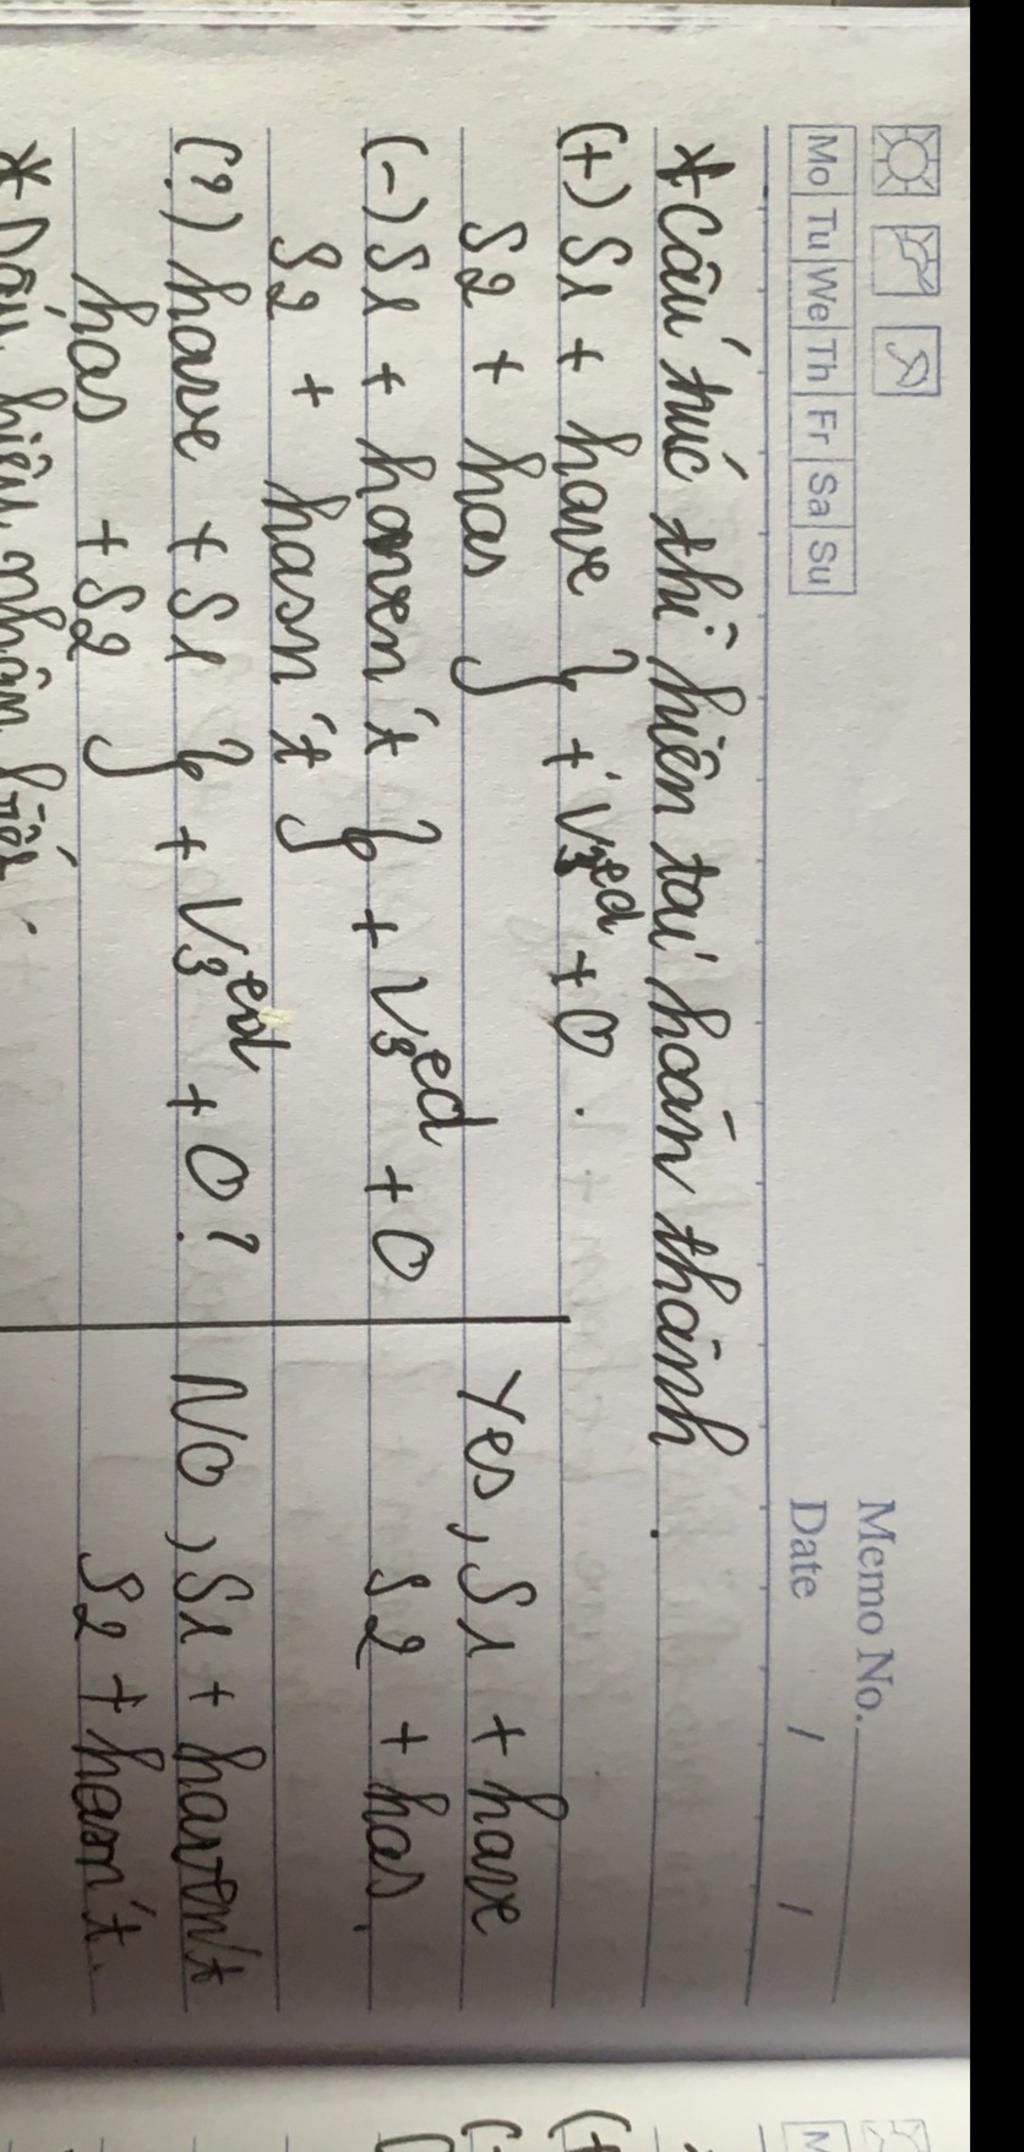 Memo No.
Mo Tu We Th Fr Sa Su
Date / /
*Cấu trúc thì hiện tại hoàn thành.
(+) S1 + have } + V3ed + O.
S2 + has
Yes, S1 + have
(-) S1 + haven't } + V3ed + O
S2 + has.
S2 + hasn't
(?) have + S1 } + V3ed + O?
No, S1 + haven't
has + S2
S2 + hasn't.
* Dấu hiệu nhận biết